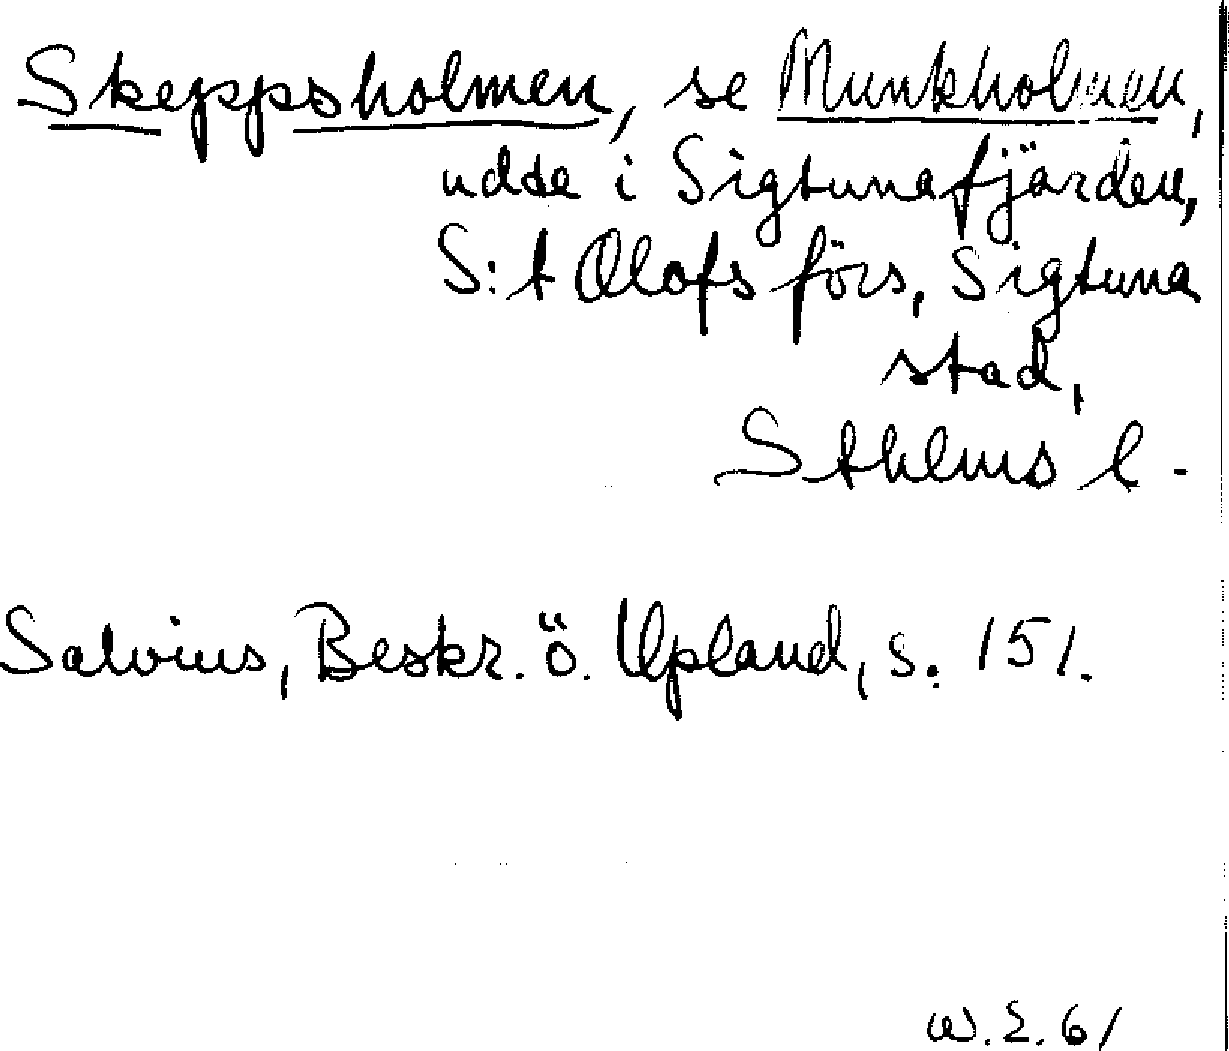 Skeppsholmen, se Munkholmen,
udde i Sigtunafjärden,
S:t Olofs förs, Sigtuna
stad,
Sthlms l.
Salvius, Beskr. ö. Upland, s. 151.
W.E. 61